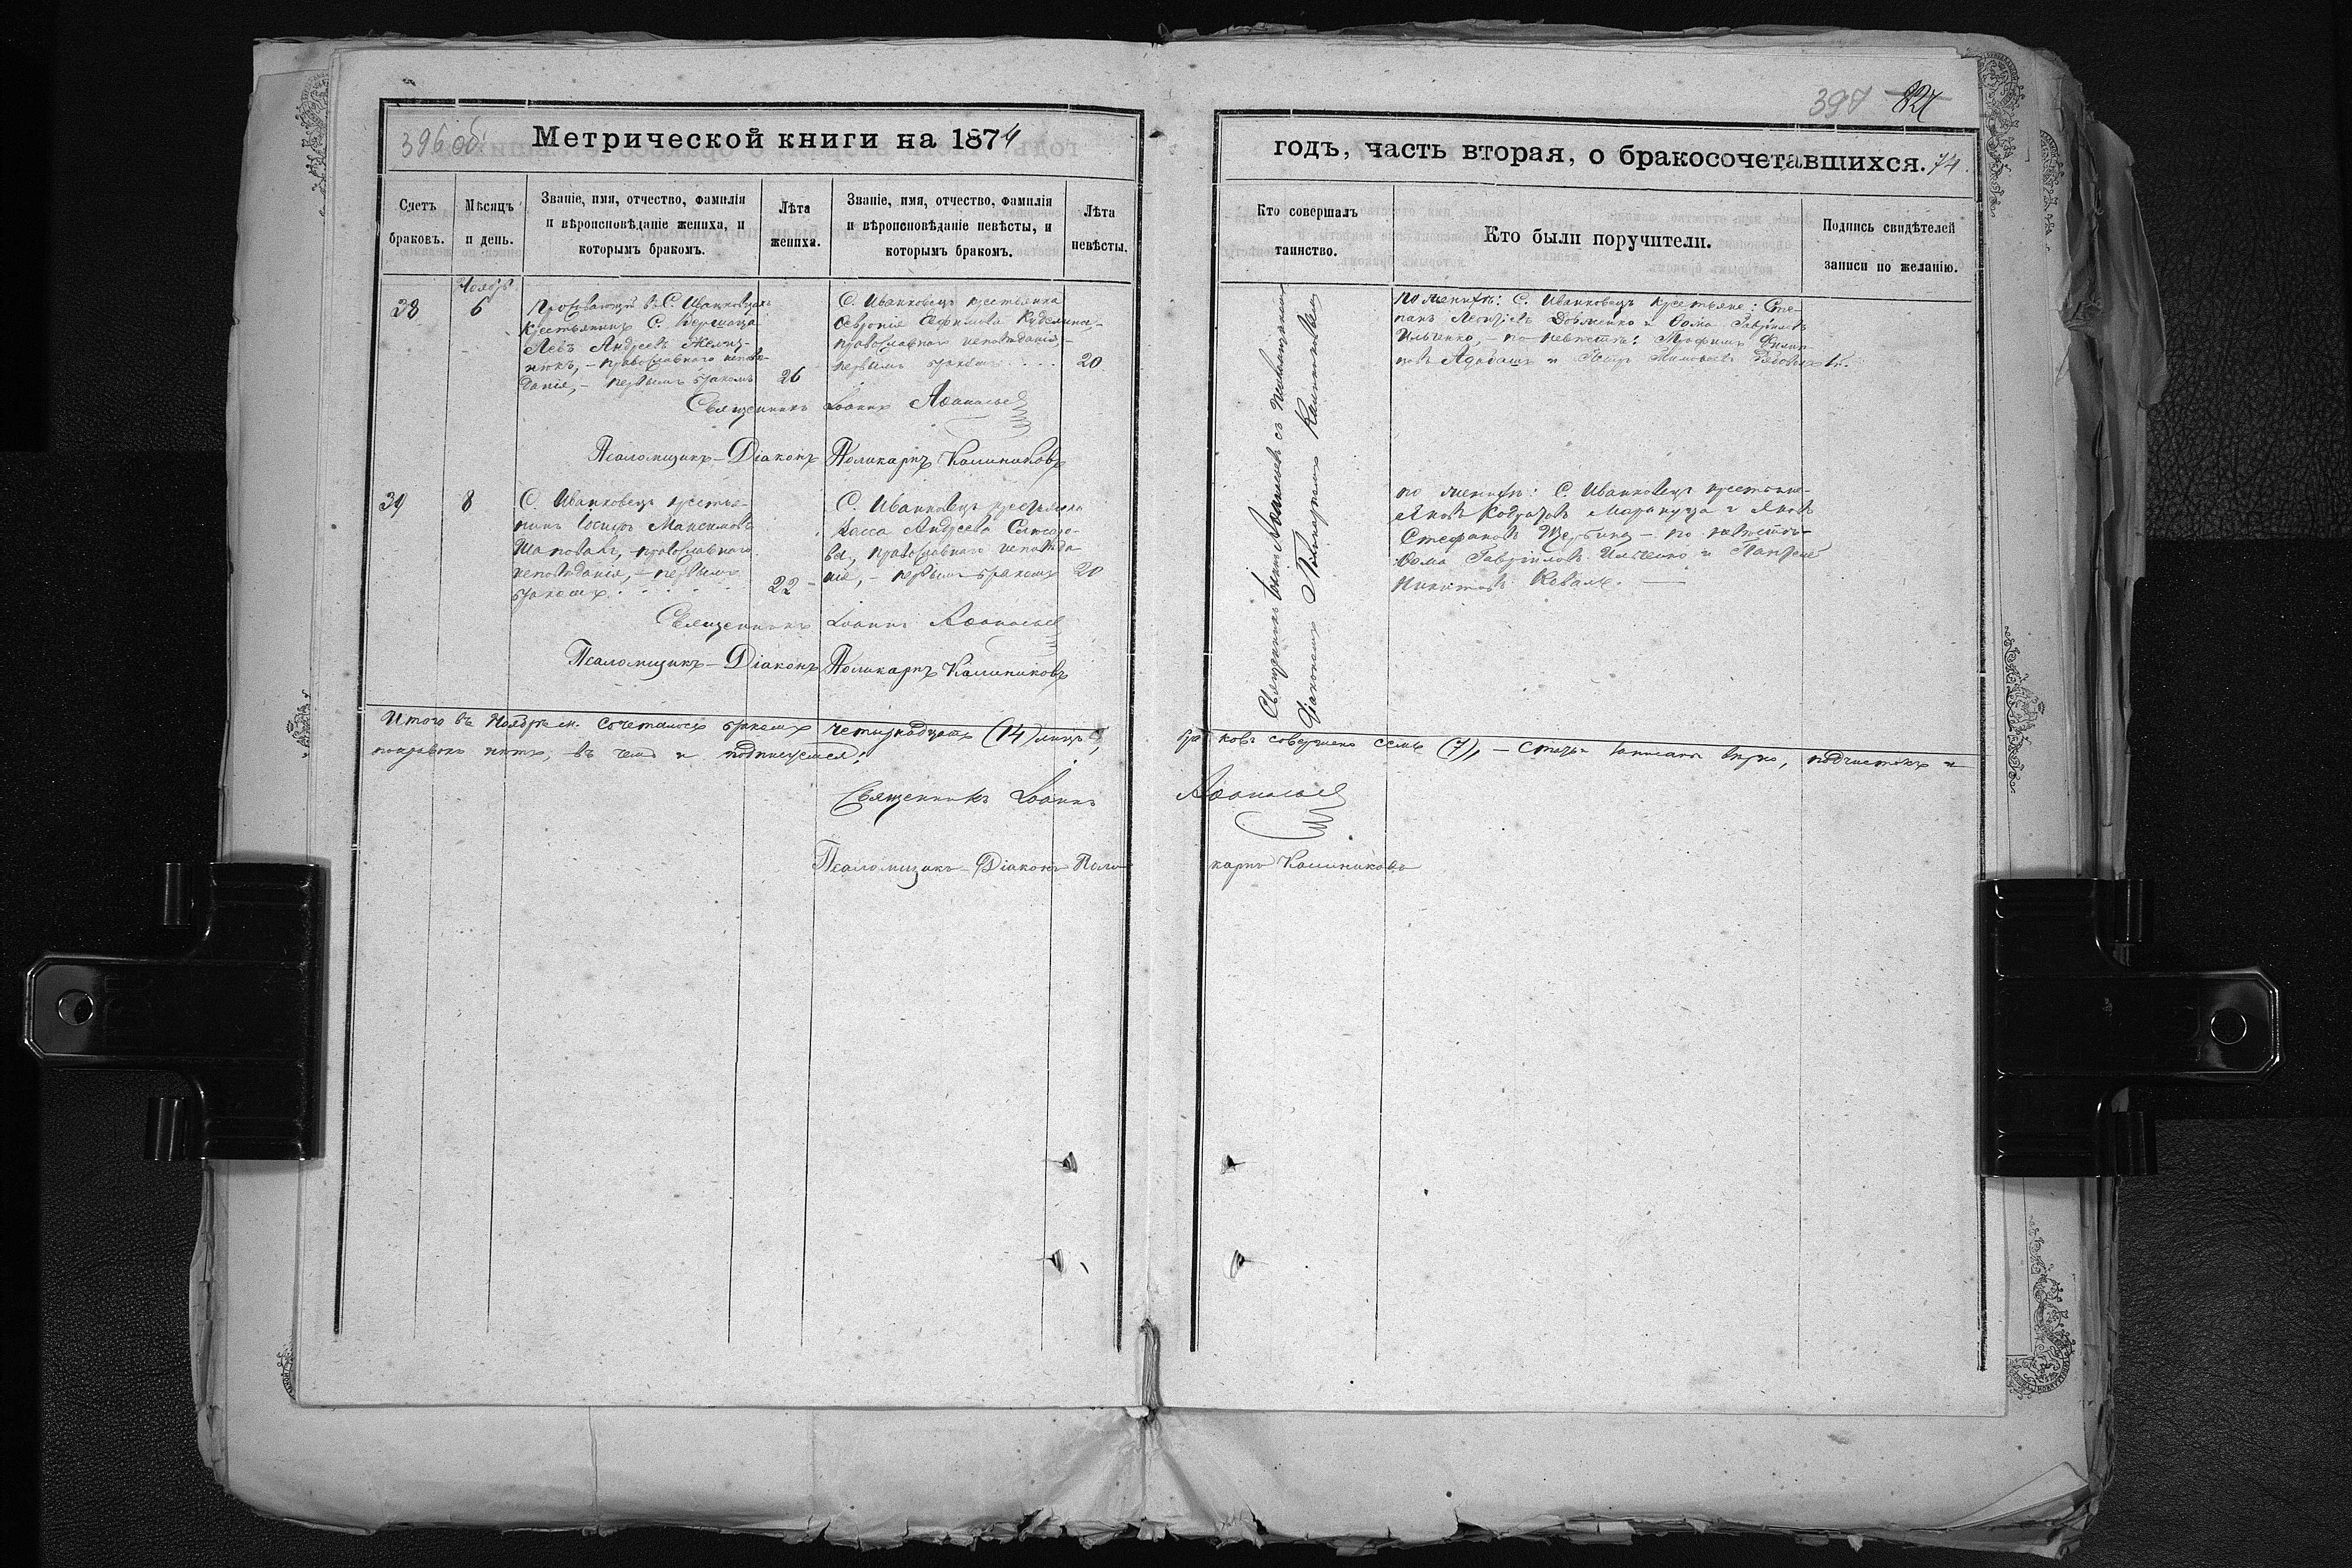 396 об.
Метрической книги на 1874
Счетъ браковъ.
Мѣсяцъ и день.
Званіе, имя, отчество, фамилія
и вѣроисповѣданіе жениха, и
которымъ бракомъ.
Лѣта
жениха.
Званіе, имя, отчество, фамилія
и вѣроисповѣданіе невѣсты, и
которымъ бракомъ.
Лѣта
невѣсты.
Ноябрь
6
Крестьянинъ С.
Левъ Андреевъ
православнаго исповѣ-
данія, – первымъ бракомъ
26
С. Иванковецъ крестьянка
православнаго исповѣданія –
первымъ бракомъ . . .
20
Священникъ Іоаннъ Аѳанасьев
Псаломщикъ – Діаконъ Поликарпъ Калиниковъ
8
С. Иванковецъ кресть-
нинъ Іосифъ Максимовъ
Шаповалъ, – православнаго
исповѣданія, – первымъ
бракомъ . . . . .
22
С. Иванковецъ крестьянка
Андреева
православнаго исповѣда-
нія, – первымъ бракомъ
20
Священникъ Іоаннъ Аѳанасьев
Псаломщикъ – Діаконъ Поликарпъ Калиниковъ
Итого въ Ноябрѣ м. сочеталось бракомъ четырнадцать (14) лицъ,
поправокъ нѣтъ, въ чемъ и подписуемся:
Священникъ Іоаннъ
Псаломщикъ – Діаконъ Поли-
397 824
годъ, часть вторая, о бракосочетавшихся. 74.
Кто совершалъ
таинство.
Кто были поручители.
Подпись свидѣтелей
записи по желанію.
Священникъ Іоаннъ Аѳанасьевъ съ
Діакономъ Поликарпомъ Калиниковымъ
по женихѣ: С. Иванковецъ крестьяне: Сте-
панъ Леонтіевъ Довженко и Ѳома Гавріиловъ
Ильченко, – по невѣстѣ: Трофимъ Филип-
повъ
по женихѣ: С. Иванковецъ крестьяне –
Яковъ
Стефановъ Щербина – по невѣстѣ –
Ѳома Гавріиловъ Ильченко и
Никитовъ Коваль. —
браковъ совершено семь (7), – Статьи записаны вѣрно, подчистокъ и
Аѳанасьев
карпъ Калиниковъ